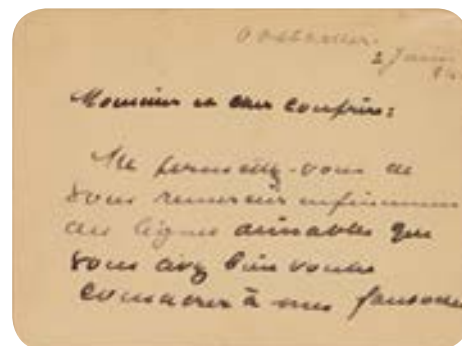 2 J
Monsieur et cher confrère:
Me permettez-vous de
vous remercier infiniment
des lignes aimables que
vous avez bien voulu
consacrer à mes